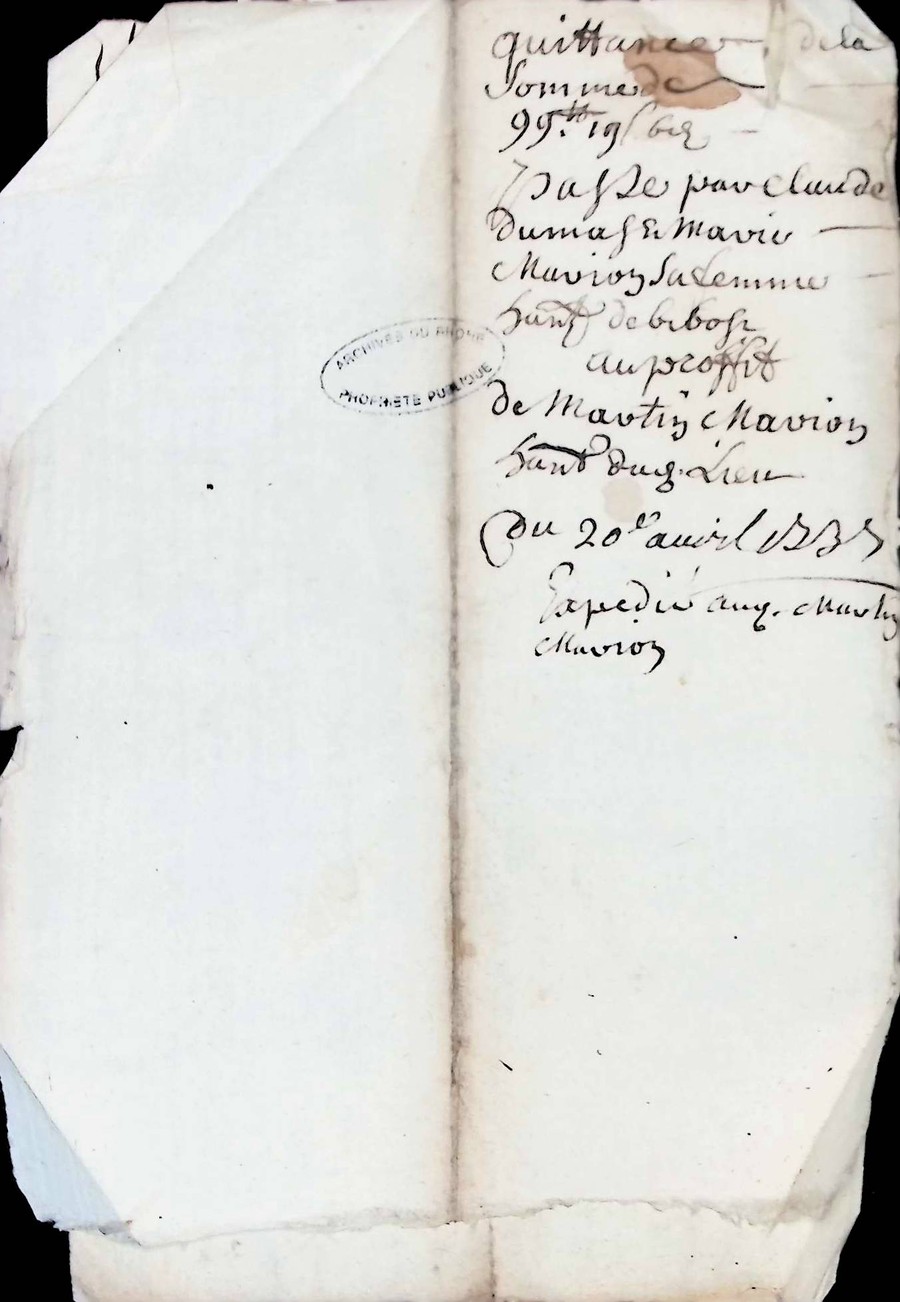 quittance de la
Somme de
99.tt 19 s 6 d
Passe par Claude
Dumas & Marie
Marion Sa femme
hant de bibost
au proffit
de Martin Marion
hant dud. Lieu
Du 20e avril
Expedié aud. Martin
Marion
ARCHIVES DU RHONE
PROPRIETE PUBLIQUE